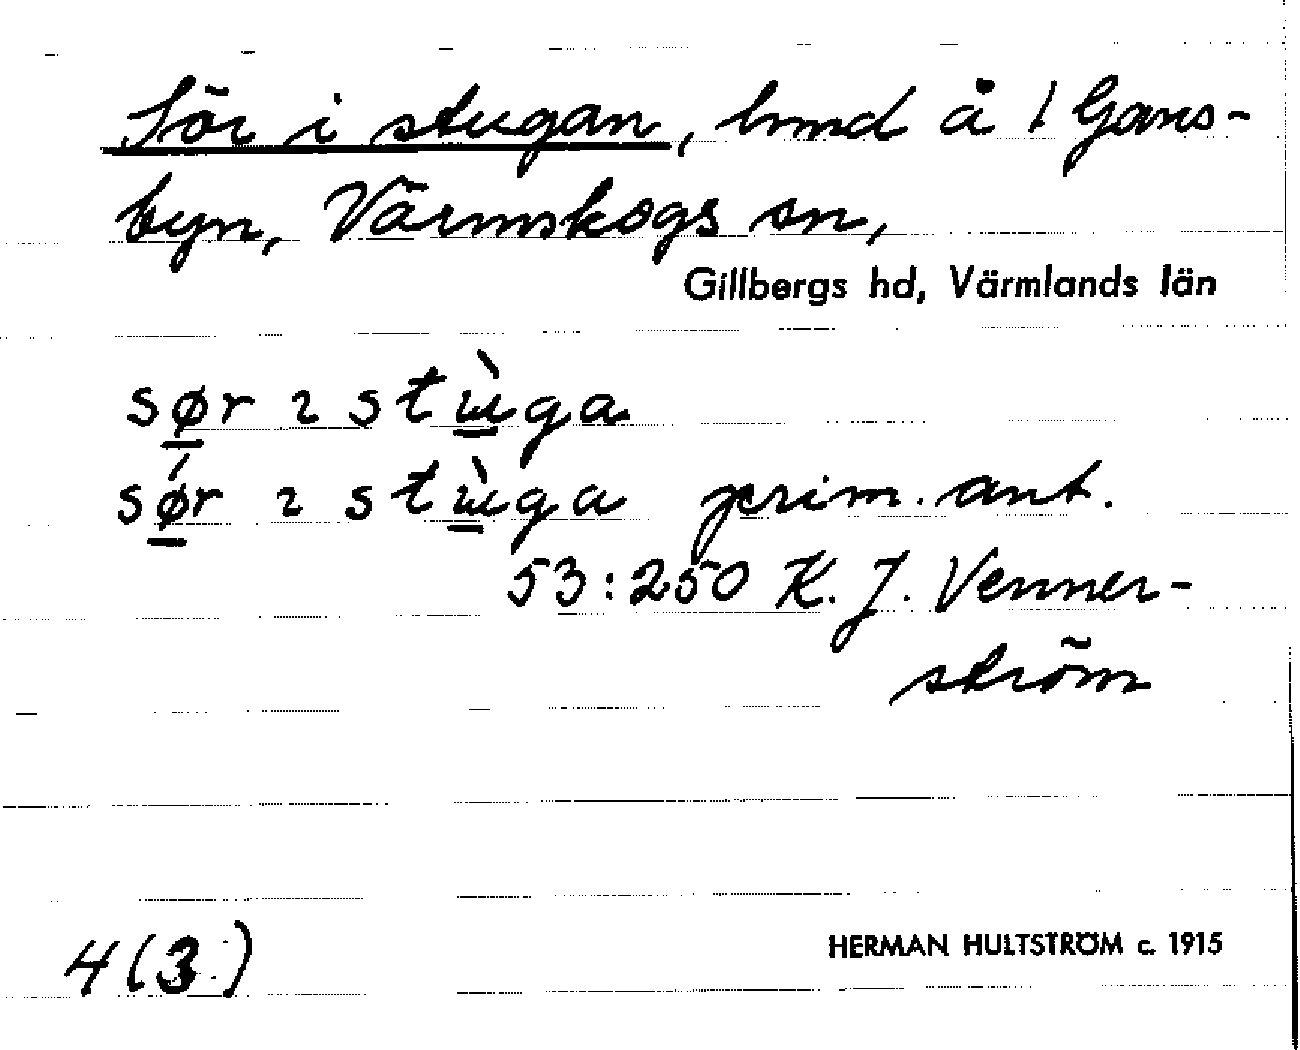 Sör i stugan, hmd å 1 Gans-
byn, Värmskogs sn,
Gillbergs hd, Värmlands län
sø̱r ɿ stɯ̱̀ga
sǿ̱r ɿ stɯ̱̀ga prim. ant.
53:250 K. J. Venner-
ström
4(3)
HERMAN HULTSTRÖM c. 1915